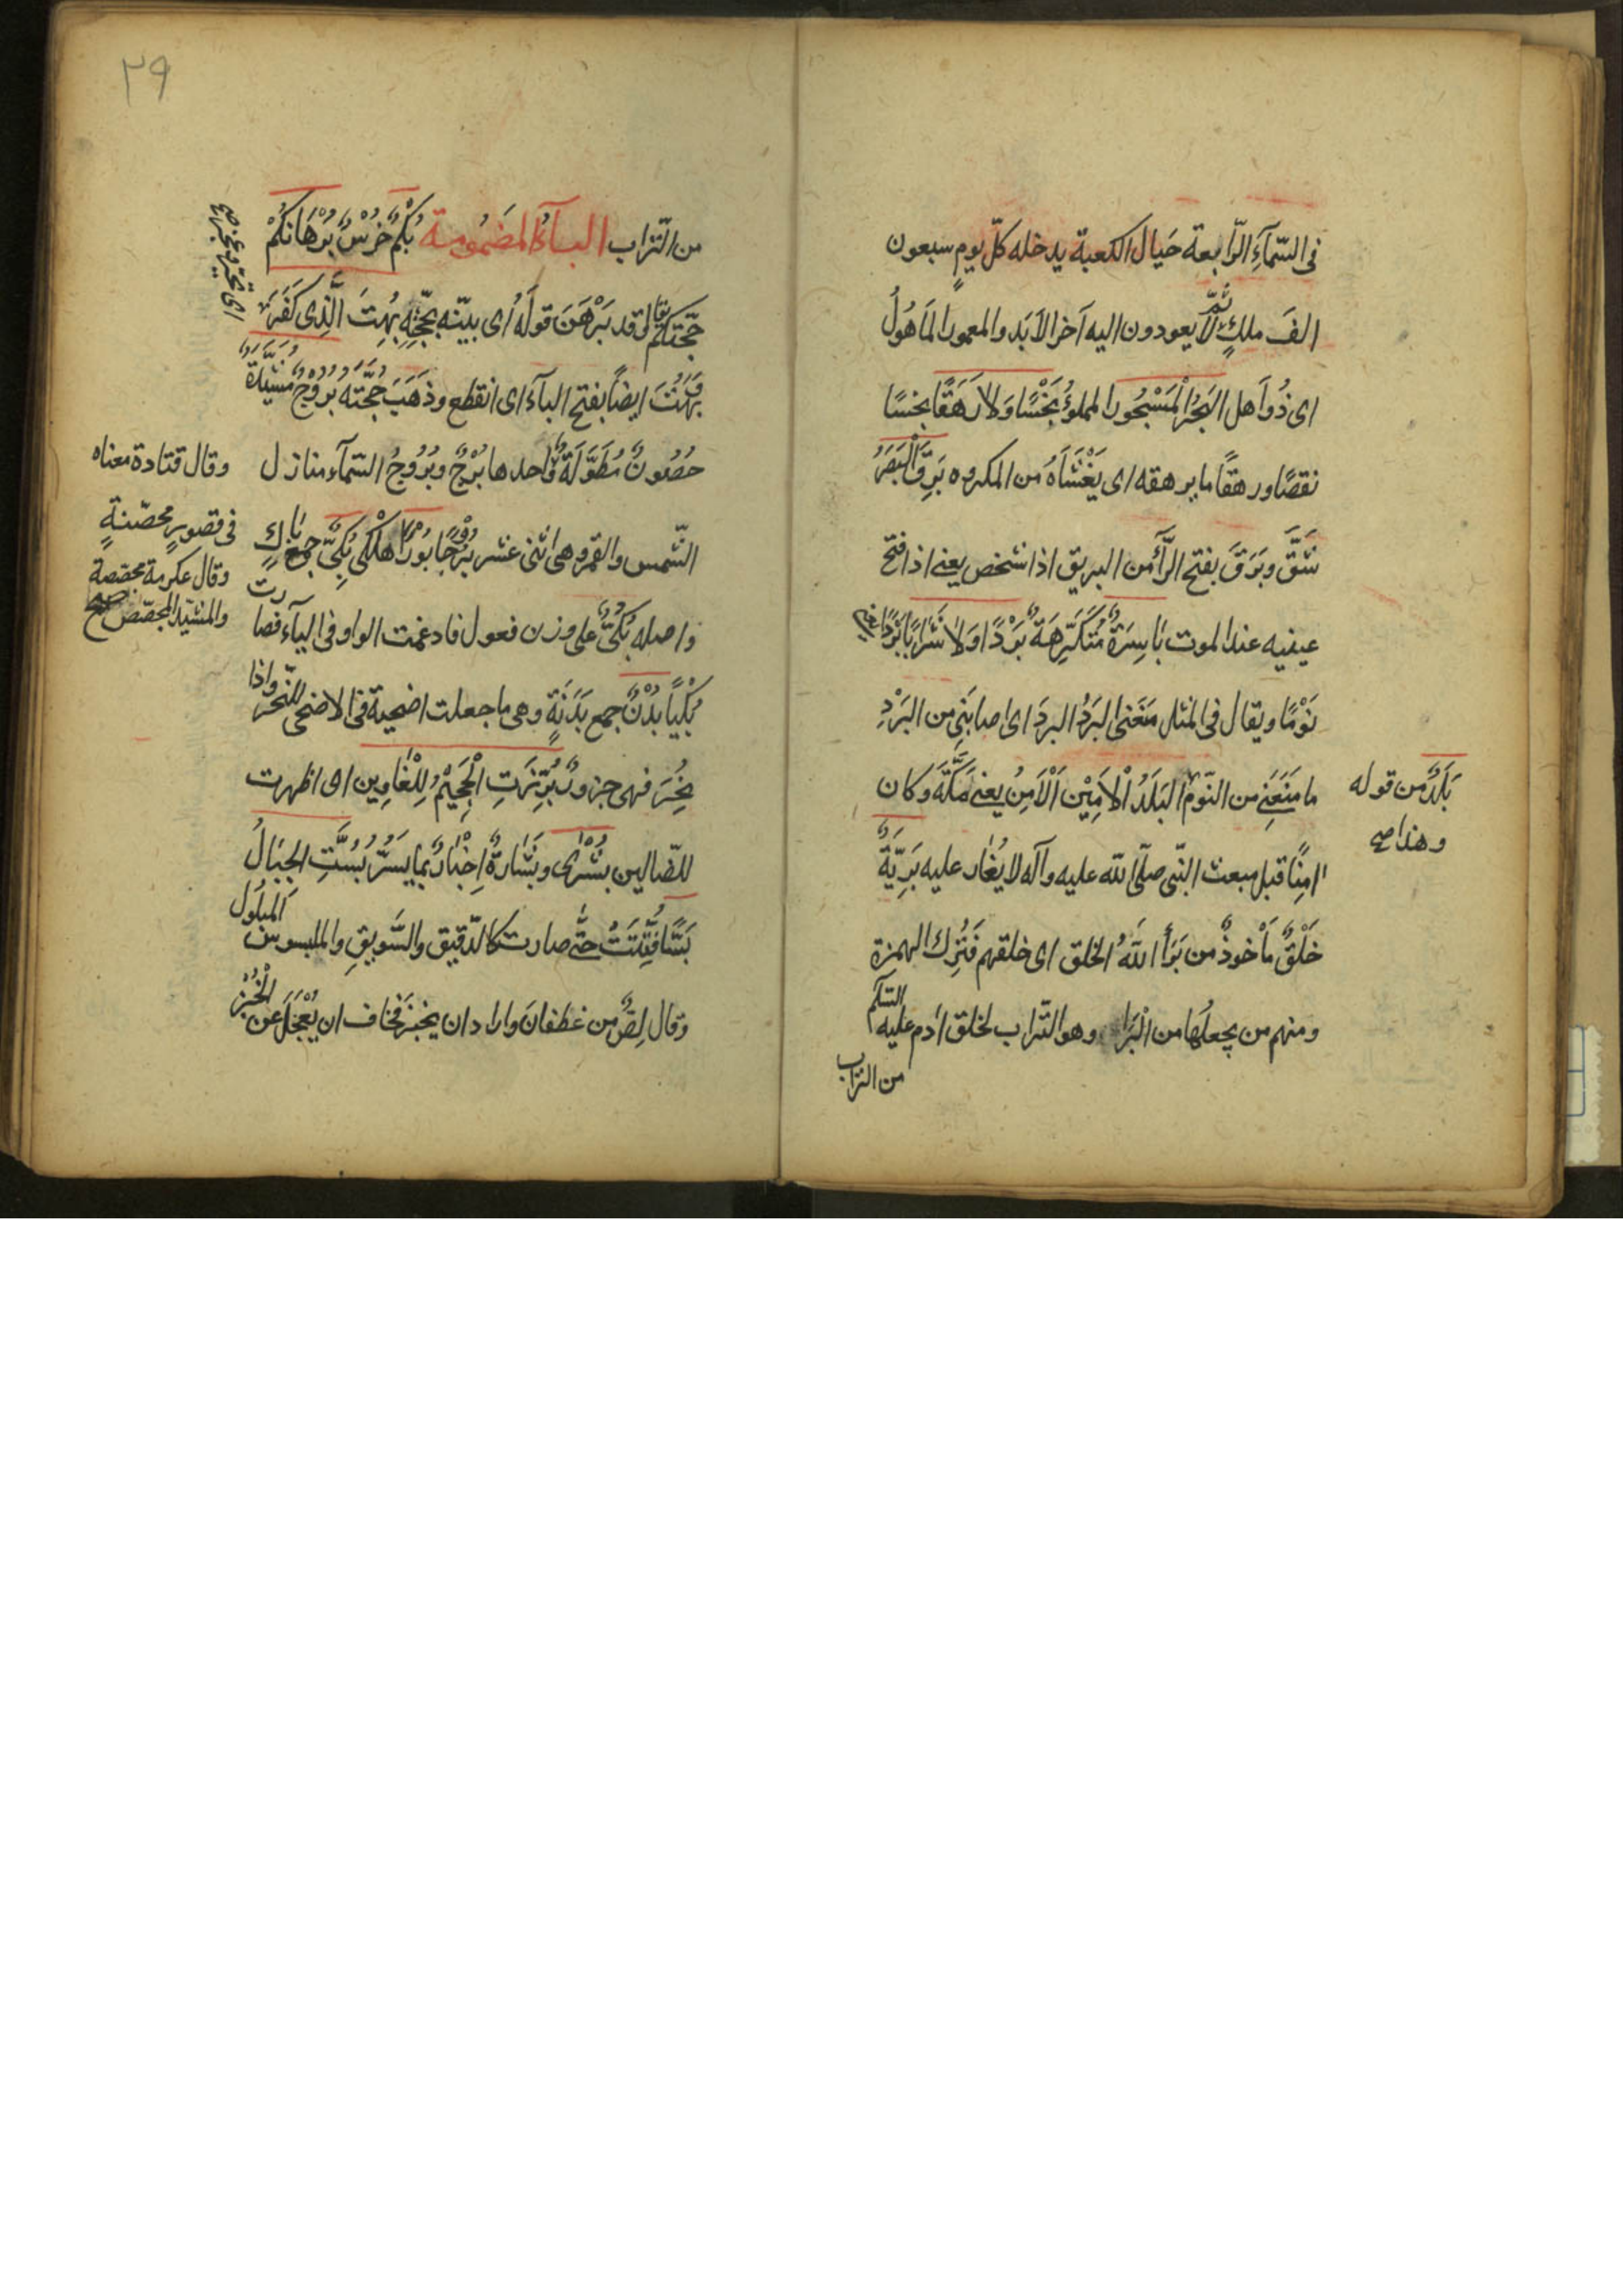 فى السّمآءِ الرّابعة حَيال الكعبة يدخله كلّ يومٍ سبعون
الفَ ملكٍ ثمّ لا يعودون اليه آخر الاَبَد والمعمور المَاهُولُ
اى ذُو اَهل البَحْرُ الْمَسْجُور المملوُّ بَخْسًا وَلا رَهَقًا بخسًا
نقصًا ورهقًا ما يرهقه اى يَغْشَاهُ من المكروه بَرِقَ الْبَصَرُ
شَقَّ وبَرَقَ بفتح الرّآء من البريق اذا شخص يعنى اذا فتح
عينيه عند الموت بَاسِرَةٌ مُتَكَرِّهَةٌ بَرْدًا وَلا شَرَابًا بَرْدًا
نَوْمًا ويقال فى المثل مَنَعَنى البَرْدُ البردَ اى اصابَنِى من البَرْدِ
ما مَنَعَنِى من النّوم الْبَلَدُ الْاَمِيْن اَلْاَمِنُ يعنى مَكَّةَ وكان
بَلَدٌ من قوله
وهذا صح
امِنًا قبل مبعث النّبى صلّى الله عليه وآله لا يُغَار عليه بَرِيّةٌ
خَلْقٌ مَأْخوذٌ من بَرَأَ اللهُ الخلق اى خلقهم فَتُرِكَ الهمزة
ومنهم من يجعلُها من الْبَرَا وهو التّراب لخلق ادم عليه السّلم
من التراب
٣٩
من التّراب البآءُ المضمُومة بُكْمٌ خُرْسٌ بُرْهَانَكُمْ
حجّتكم يقال قد بَرْهَنَ قولَه اى بيّنه بحجّتِهِ بُهِتَ الَّذِى كَفَرَ
وبَهَتَ ايضاً بفتح البآء اى انقطع وذَهَبَ حُجَّتُه بُرُوْجٌ مُشَيَّدَةٌ
حُصُونٌ مُطَوَّلَةٌ واحدها بُرْجٌ وبُرُوجُ السّمآء منازل
وقال قتادة معناه
فى قصورٍ محصّنةٍ
وقال عكرمة مجصّصةً
والمشيّد المجصّص صح
الشّمس والقمر وهى اثنى عشر بُرْجًا بُوْرًا هَلْكى بُكِىٌّ جمع بَاكٍ
واصله بُكُىٌّ على وزن فعول فادغمت الواو فى اليآء فصارت
بُكْيًا بُدْنٌ جمع بَدَنَةٍ وهى ما جعلت اضحية فى الاضحى للنّحر واذا
نُحِرَ فهى جزورٌ بُرِّزَتِ الْجَحِيْمُ لِلْغَاوِين اى اظهرت
للضّالين بُشْرٰى وبشَارةٌ اِخْبَارٌ بما يَسُرّ بُسَّتِ الجِبَالُ
بَسًّا فُتِّتَتْ حتّى صارت كالدّقيق والسَّويقِ والمبسوس المبلُول
وقال لِصٌّ من غطفانَ واراد ان يخبِزَ فخاف ان يُعْجَلَ عن الْخُبْزِ